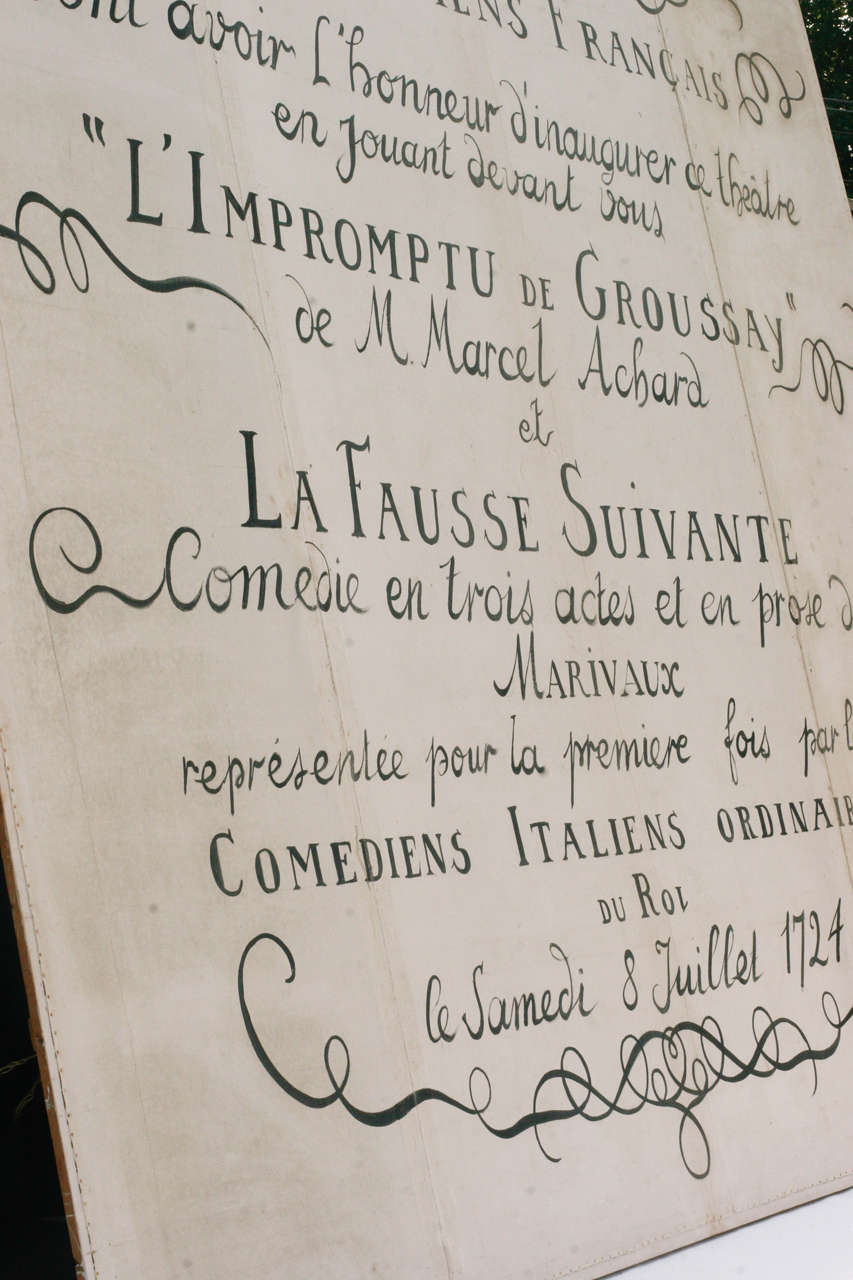 FRANÇAIS
avoir l'honneur d'inaugurer ce théâtre
en jouant devant vous
"L'IMPROMPTU DE GROUSSAY"
de M. Marcel Achard
et
LA FAUSSE SUIVANTE
Comedie en trois actes et en prose d
MARIVAUX
représentée pour la premiere fois par l
COMEDIENS ITALIENS ORDINAIR
DU ROI
le Samedi 8 Juillet 1724